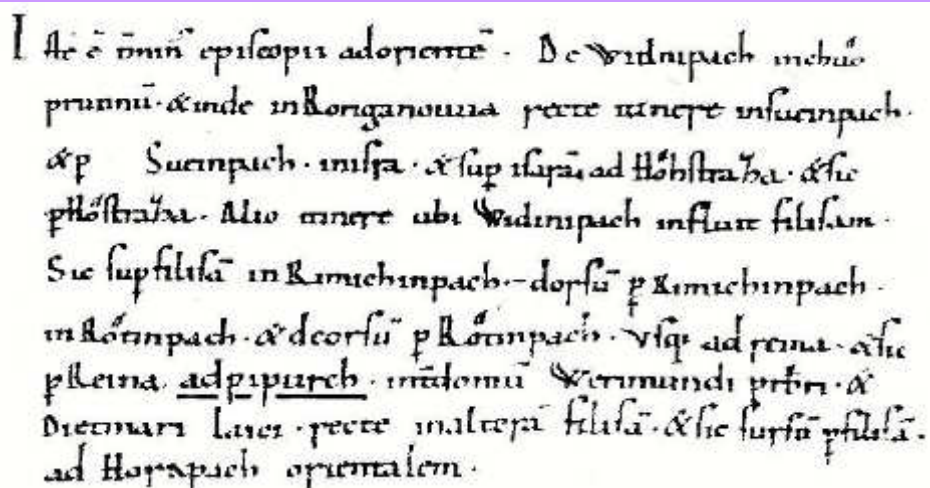 Hac ē t̄min᷒ episcopii ad orientē. De Widnipach inchuͦo
prunnū. & inde in Ronganouuia recte itinere in sueinpach.
& p̱ Sueinpach. in isra. & sup̱ isarā. ad Hoͦhstraͣza. & sic
p̱ Hoͦstraͣza. Alio itinere ubi Widinipach influit filisam.
Sic sup̱ filisā in Rimichinpach. dorsū p̱ Rimichinpach.
in Roͦtinpach. & deorsū p̱ Roͦtinpach. Vsq; ad reina. & sic
p̱ Reina. ad pipurch. int̄ domū Werimundi prb̄ri. &
Dietmari laici. recte in alterā filisā. & sic sursū p̱ filisā.
ad Horapach orientalem.